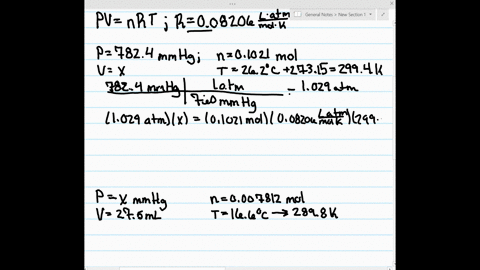 General Notes - New Section 1
PV = nRT ; R = 0.08206 L·atm/mol·K
P = 782.4 mmHg; n = 0.1021 mol
V = x T = 26.2°C + 273.15 = 299.4 K
782.4 mmHg | 1 atm = 1.029 atm
760 mmHg
(1.029 atm)(x) = (0.1021 mol)(0.08206 L·atm/mol·K)(299.
P = x mmHg n = 0.007812 mol
V = 27.6 mL T = 16.6°C → 289.8 K